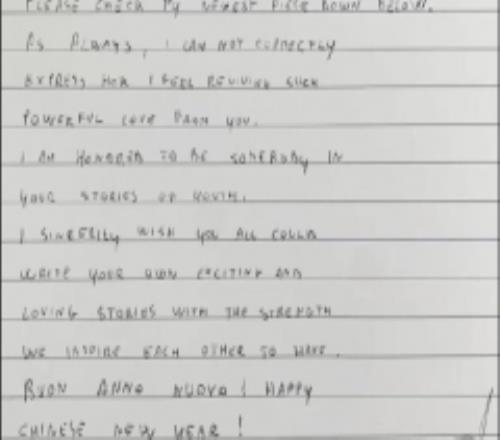 PLEASE CHECK MY NEWEST PIECE DOWN BELOW.
AS ALWAYS, I CAN NOT CORRECTLY
EXPRESS HOW I FEEL REVIVING SUCH
POWERFUL LOVE FROM YOU.
I AM HONORED TO BE SOMEBODY IN
YOUR STORIES OF YOUTH.
I SINCERILY WISH YOU ALL COULD
WRITE YOUR OWN EXCITING AND
LOVING STORIES WITH THE STRENGTH
WE INSPIRE EACH OTHER TO HAVE.
BUON ANNO NUOVO! HAPPY
CHINESE NEW YEAR!